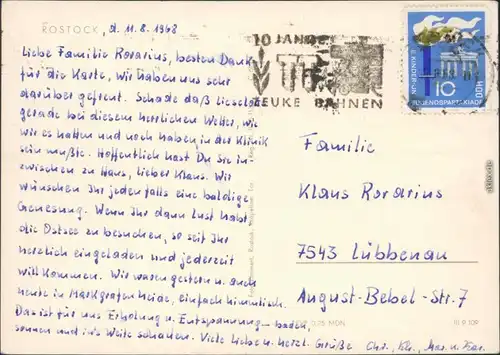 ROSTOCK, d. 11.8.1968
Liebe Familie Rorarius, besten Dank
für die Karte, wir haben uns sehr
darüber gefreut. Schade daß Lieselotte
gerade bei diesem herrlichen Wetter, wie
wir es hatten und noch haben, in der Klinik
sein mußte. Hoffentlich hast Du sie in
zwischen zu Haus, lieber Klaus. Wir
wünschen Ihr jedenfalls eine baldige
Genesung. Wenn Ihr dann Lust habt,
die Ostsee zu besuchen, so seit Ihr
herzlich eingeladen und jederzeit
willkommen. Wir waren gestern u. auch
heute in Markgrafenheide, einfach himmlisch.
Das ist für uns Erholung u. Entspannung - baden,
sonnen und in's Weite schauen. Viele liebe u. herzl. Grüße
10 JAHRE
BAHNEN
II. KINDER- UND
JUGENDSPARTAKIADE
10
DDR
Familie
Klaus Rorarius
7543 Lübbenau
August-Bebel-Str. 7
III 9 109